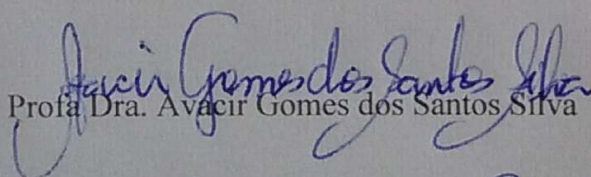 Avacir Gomes dos Santos Silva
Profa Dra. Avacir Gomes dos Santos Silva